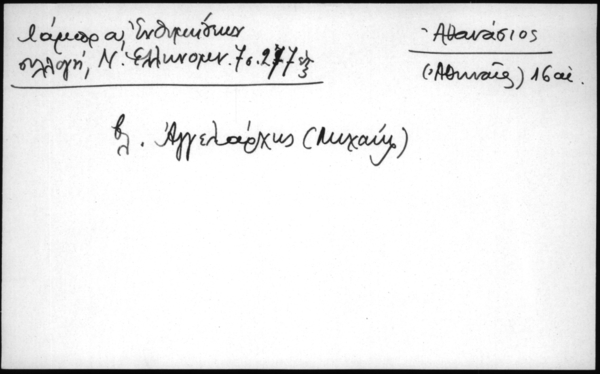 Λάμπρου, Ἐνθυμήσεων
συλλογή, Ν. Ἑλληνομν. 7 σ. 277 ἑξ
Ἀθανάσιος
(Ἀθηναῖος) 16 αἰ.
βλ. Ἀγγελάρχης (Μιχαήλ)